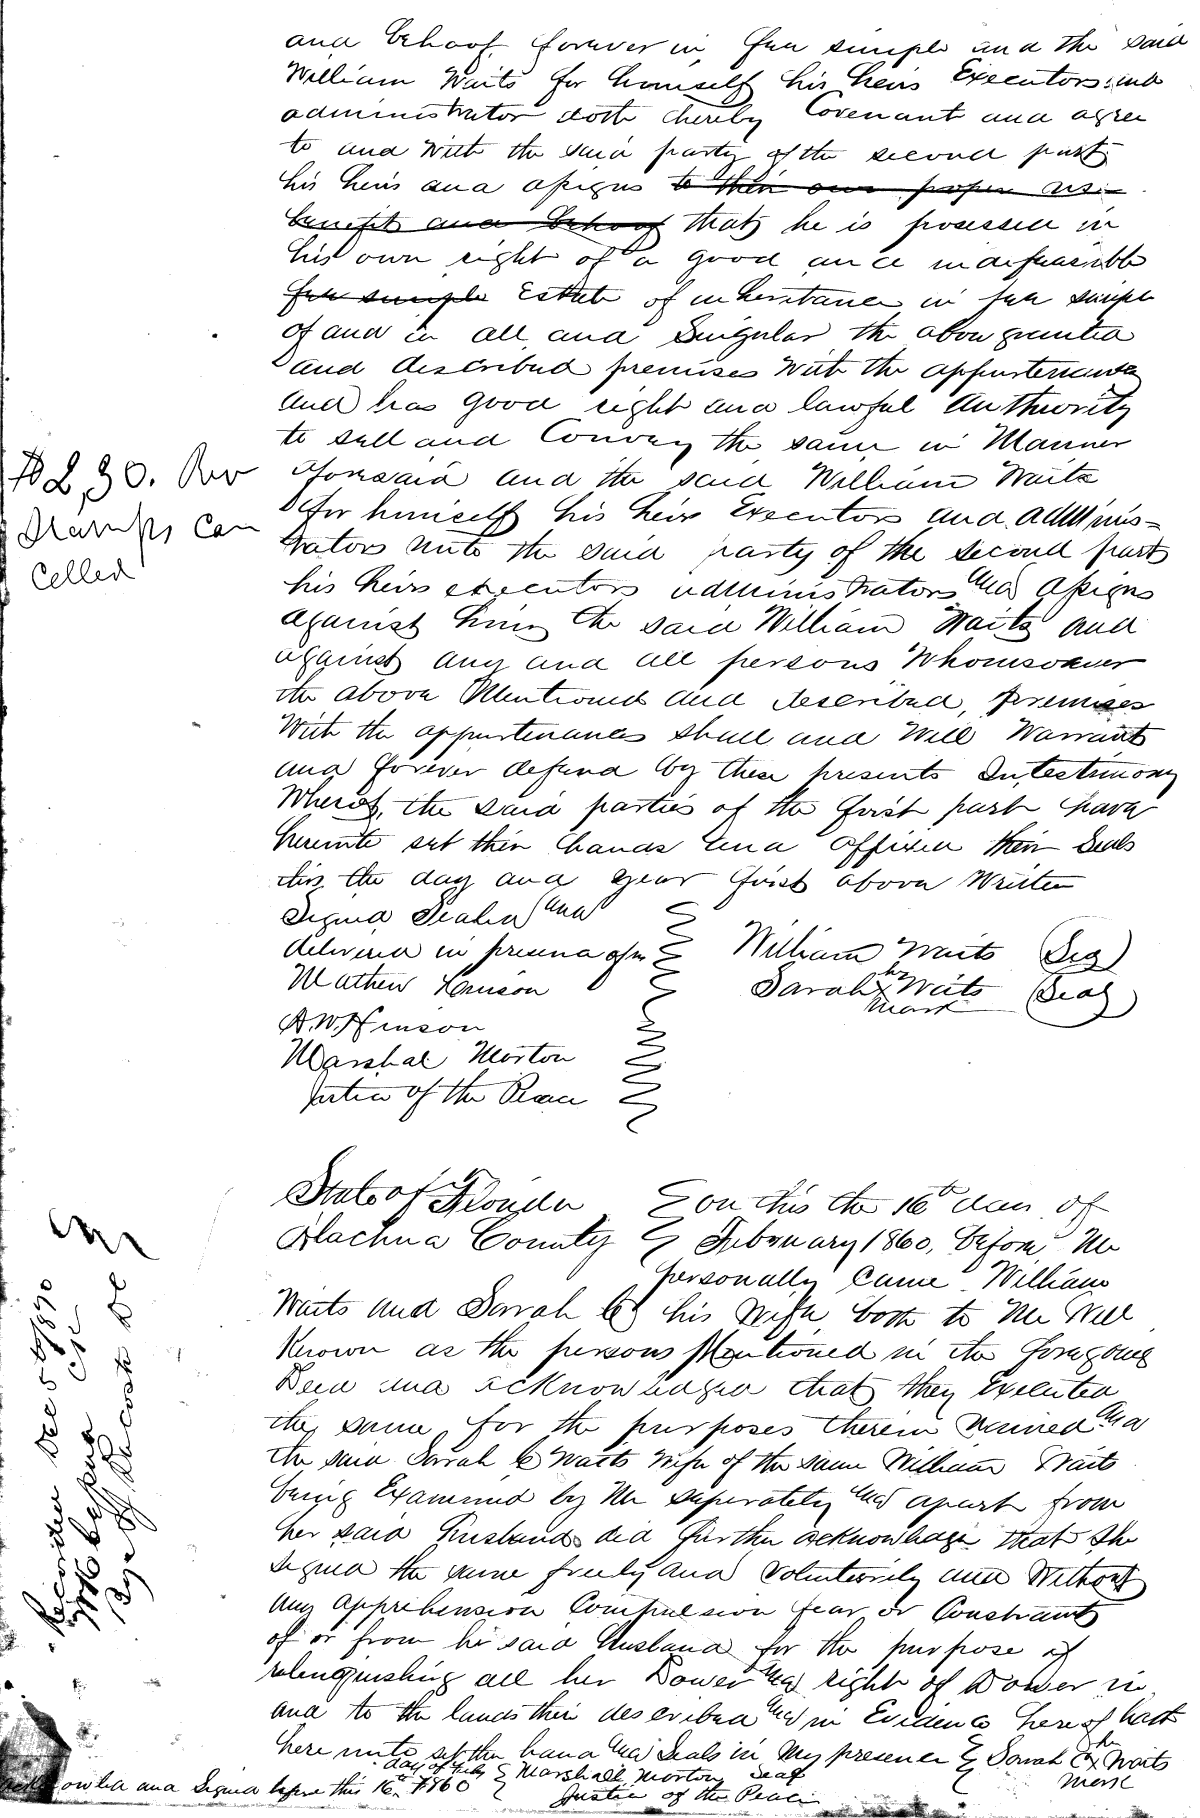 and behoof forever in fee simple and the said
William Waits for himself his heirs Executors and
administrator doth thereby Covenant and agree
to and with the said party of the second part
his heirs and assigns to their own proper use
benefit and behoof that he is posessed in
his own right of a good and indefeasible
fee simple Estate of inheritance in fee simple
of and in all and Singular the above granted
and described premises with the appurtenances
and has good right and lawful authority
to sell and Convey the same in Manner
aforesaid and the said William Waits
for himself his heirs Executors and adminis=
trators unto the said party of the second part
his heirs executors administrators and assigns
against him the said William Waits and
against any and all persons Whomsoever
the above Mentioned and described, premises
With the appurtenances shall and Will Warrant
and forever defend by these presents In testimony
Whereof, the said parties of the first part have
hereunto set their hands and affixed their Seals
this the day and year first above Written
Signed Sealed and
delivered in presence of us
William Waits (Seal)
Mathew
Sarah her x mark Waits (Seal)
A. W. Hinson
Marshal Morton
Justice of the Peace
$2,30. Rev
Stamps Can
celled
State of Florida
Alachua County
on this the 16th day of
February 1860, before Me
personally came William
Waits and Sarah C his Wife both to Me Well
Known as the persons Mentioned in the foregoing
Deed and acknowledged that they Executed
the same for the purposes therein named and
the said Sarah C Waits wife of the same William Waits
being Examined by Me seperately and apart from
her said Husband did further acknowledge that she
signed the same freely and voluntarily and Without
any apprehension Compulsion fear or Constraint
of or from he said Husband for the purpose of
relenquishing all her Dower and right of Dower in
and to the lands their described and in Evidence hereof hath
here unto set ther hand and Seals in My presence Sarah C her x mark Waits
acknowled and Signed before this 16th day of Feby 1860
Marshall Morton Seal
Justice of the Peace
Recorded Dec 5th 1870
By